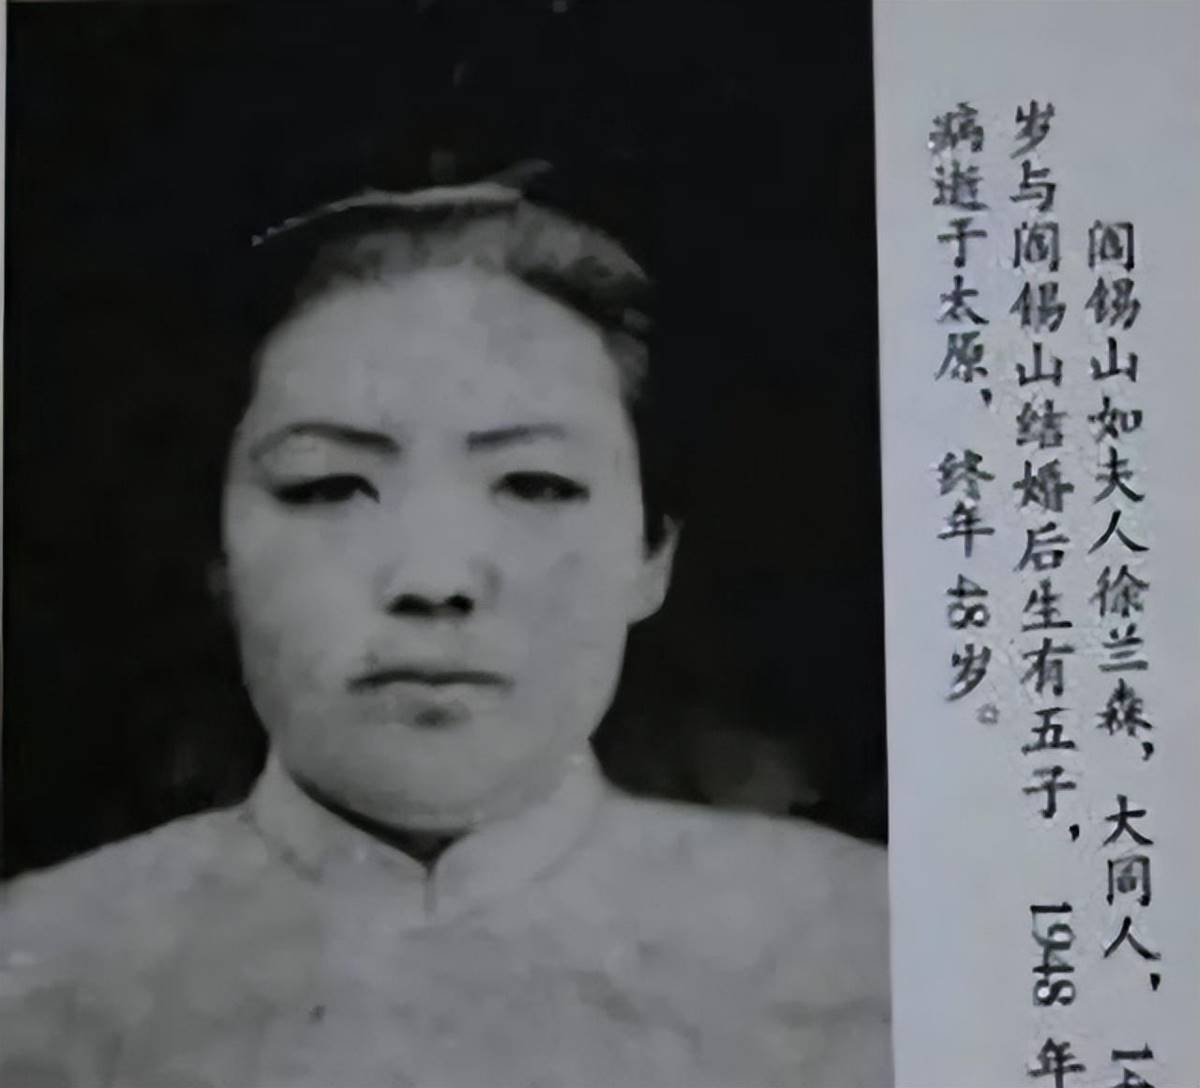 阎锡山如夫人徐兰森，大同人，一
岁与阎锡山结婚后生有五子，1948 年
病逝于太原，终年 48 岁。